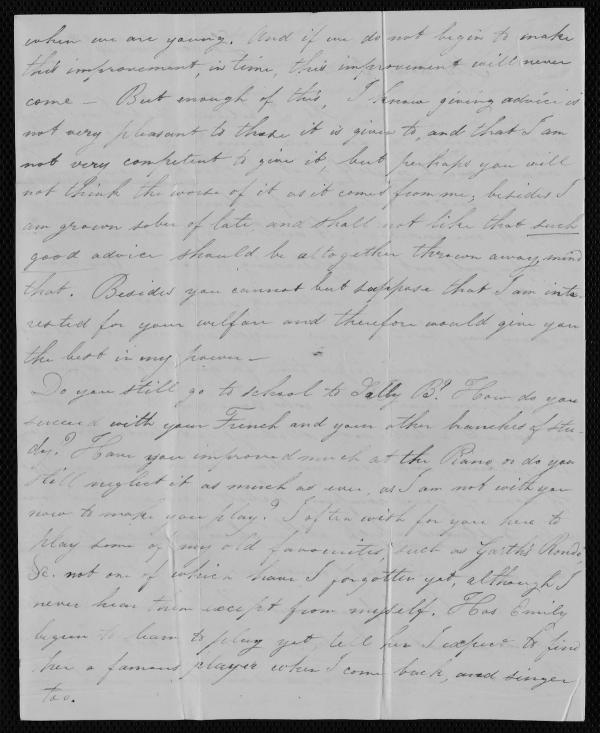 when we are young. And if we do not begin to make
this improvement, in time, this improvement will never
come – But enough of this, I know giving advice is
not very pleasant to those it is given to, and that I am
not very competent to give it, but perhaps you will
not think the worse of it as it comes from me, besides I
am grown sober of late, and shall not like that such
good advice should be altogether thrown away, mind
that. Besides you cannot but suppose that I am inte-
rested for your welfare and therefore would give you
the best in my power –
Do you still go to school to Sally B.? How do you
succeed with your French and your other branches of stu-
dy? Have you improved much at the Piano, or do you
still neglect it as much as ever, as I am not with you
now to make you play? I often wish for you here to
play some of my old favourites, such as Garth's Rondo,
&c. not one of which have I forgotten yet, although I
never hear them except from myself. Has Emily
begun to learn to play yet, tell her I expect to find
her a famous player when I come back, and singer
too.